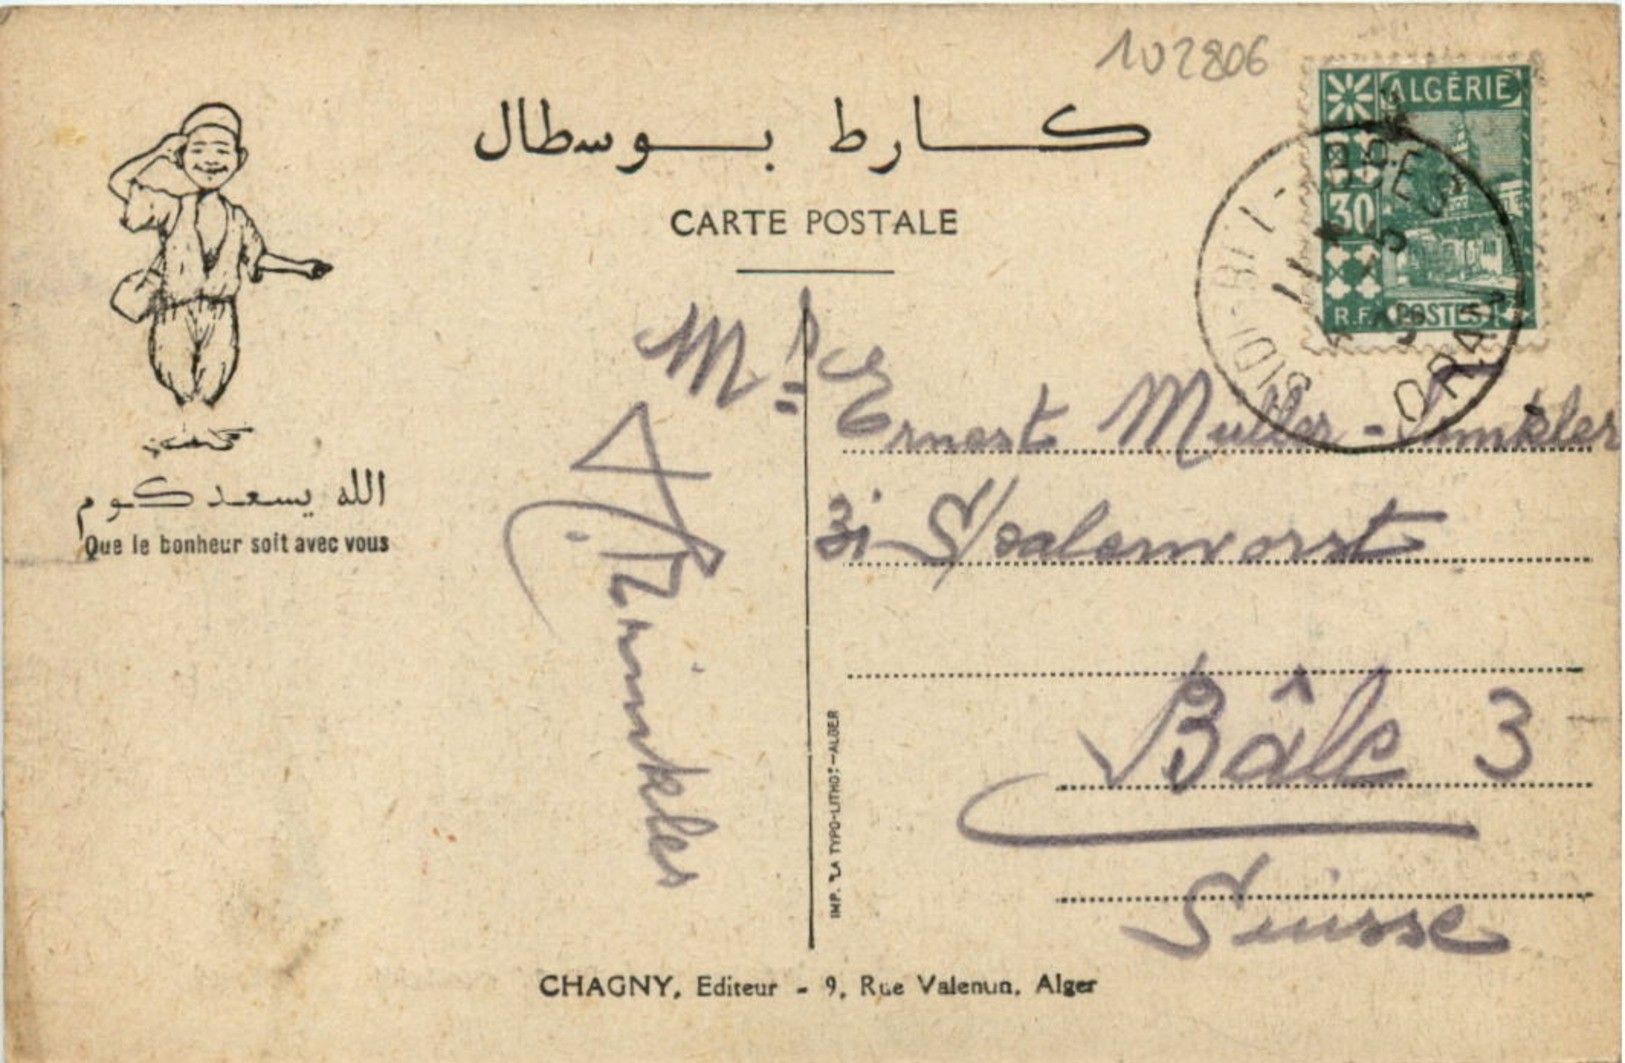 102806
كارط بوسطال
CARTE POSTALE
ALGÉRIE
30
R.F. POSTES
SIDI-BEL-ABBÈS
ORAN
الله يسعدكوم
Que le bonheur soit avec vous
Mr Ernest Muller-Winkler
31 Spalenvorst
Bâle 3
Suisse
Winkler
IMP. "LA TYPO-LITHO"-ALGER
CHAGNY, Editeur - 9, Rue Valentin, Alger